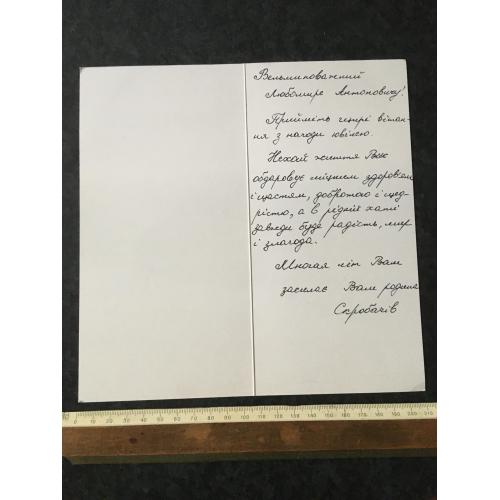 Вельмишановний
Любомире Антоновичу!
Прийміть щирі вітан-
ня з нагоди ювілею.
Нехай життя Вас
обдаровує міцним здоров'ям
і щастям, добротою і щед-
рістю, а в рідній хаті
завжди буде радість, мир
і злагода.
Многая літ Вам
засилає Вам родина
Скробачів
0 10 20 30 40 50 60 70 80 90 100 110 120 130 140 150 160 170 180 190 200 210